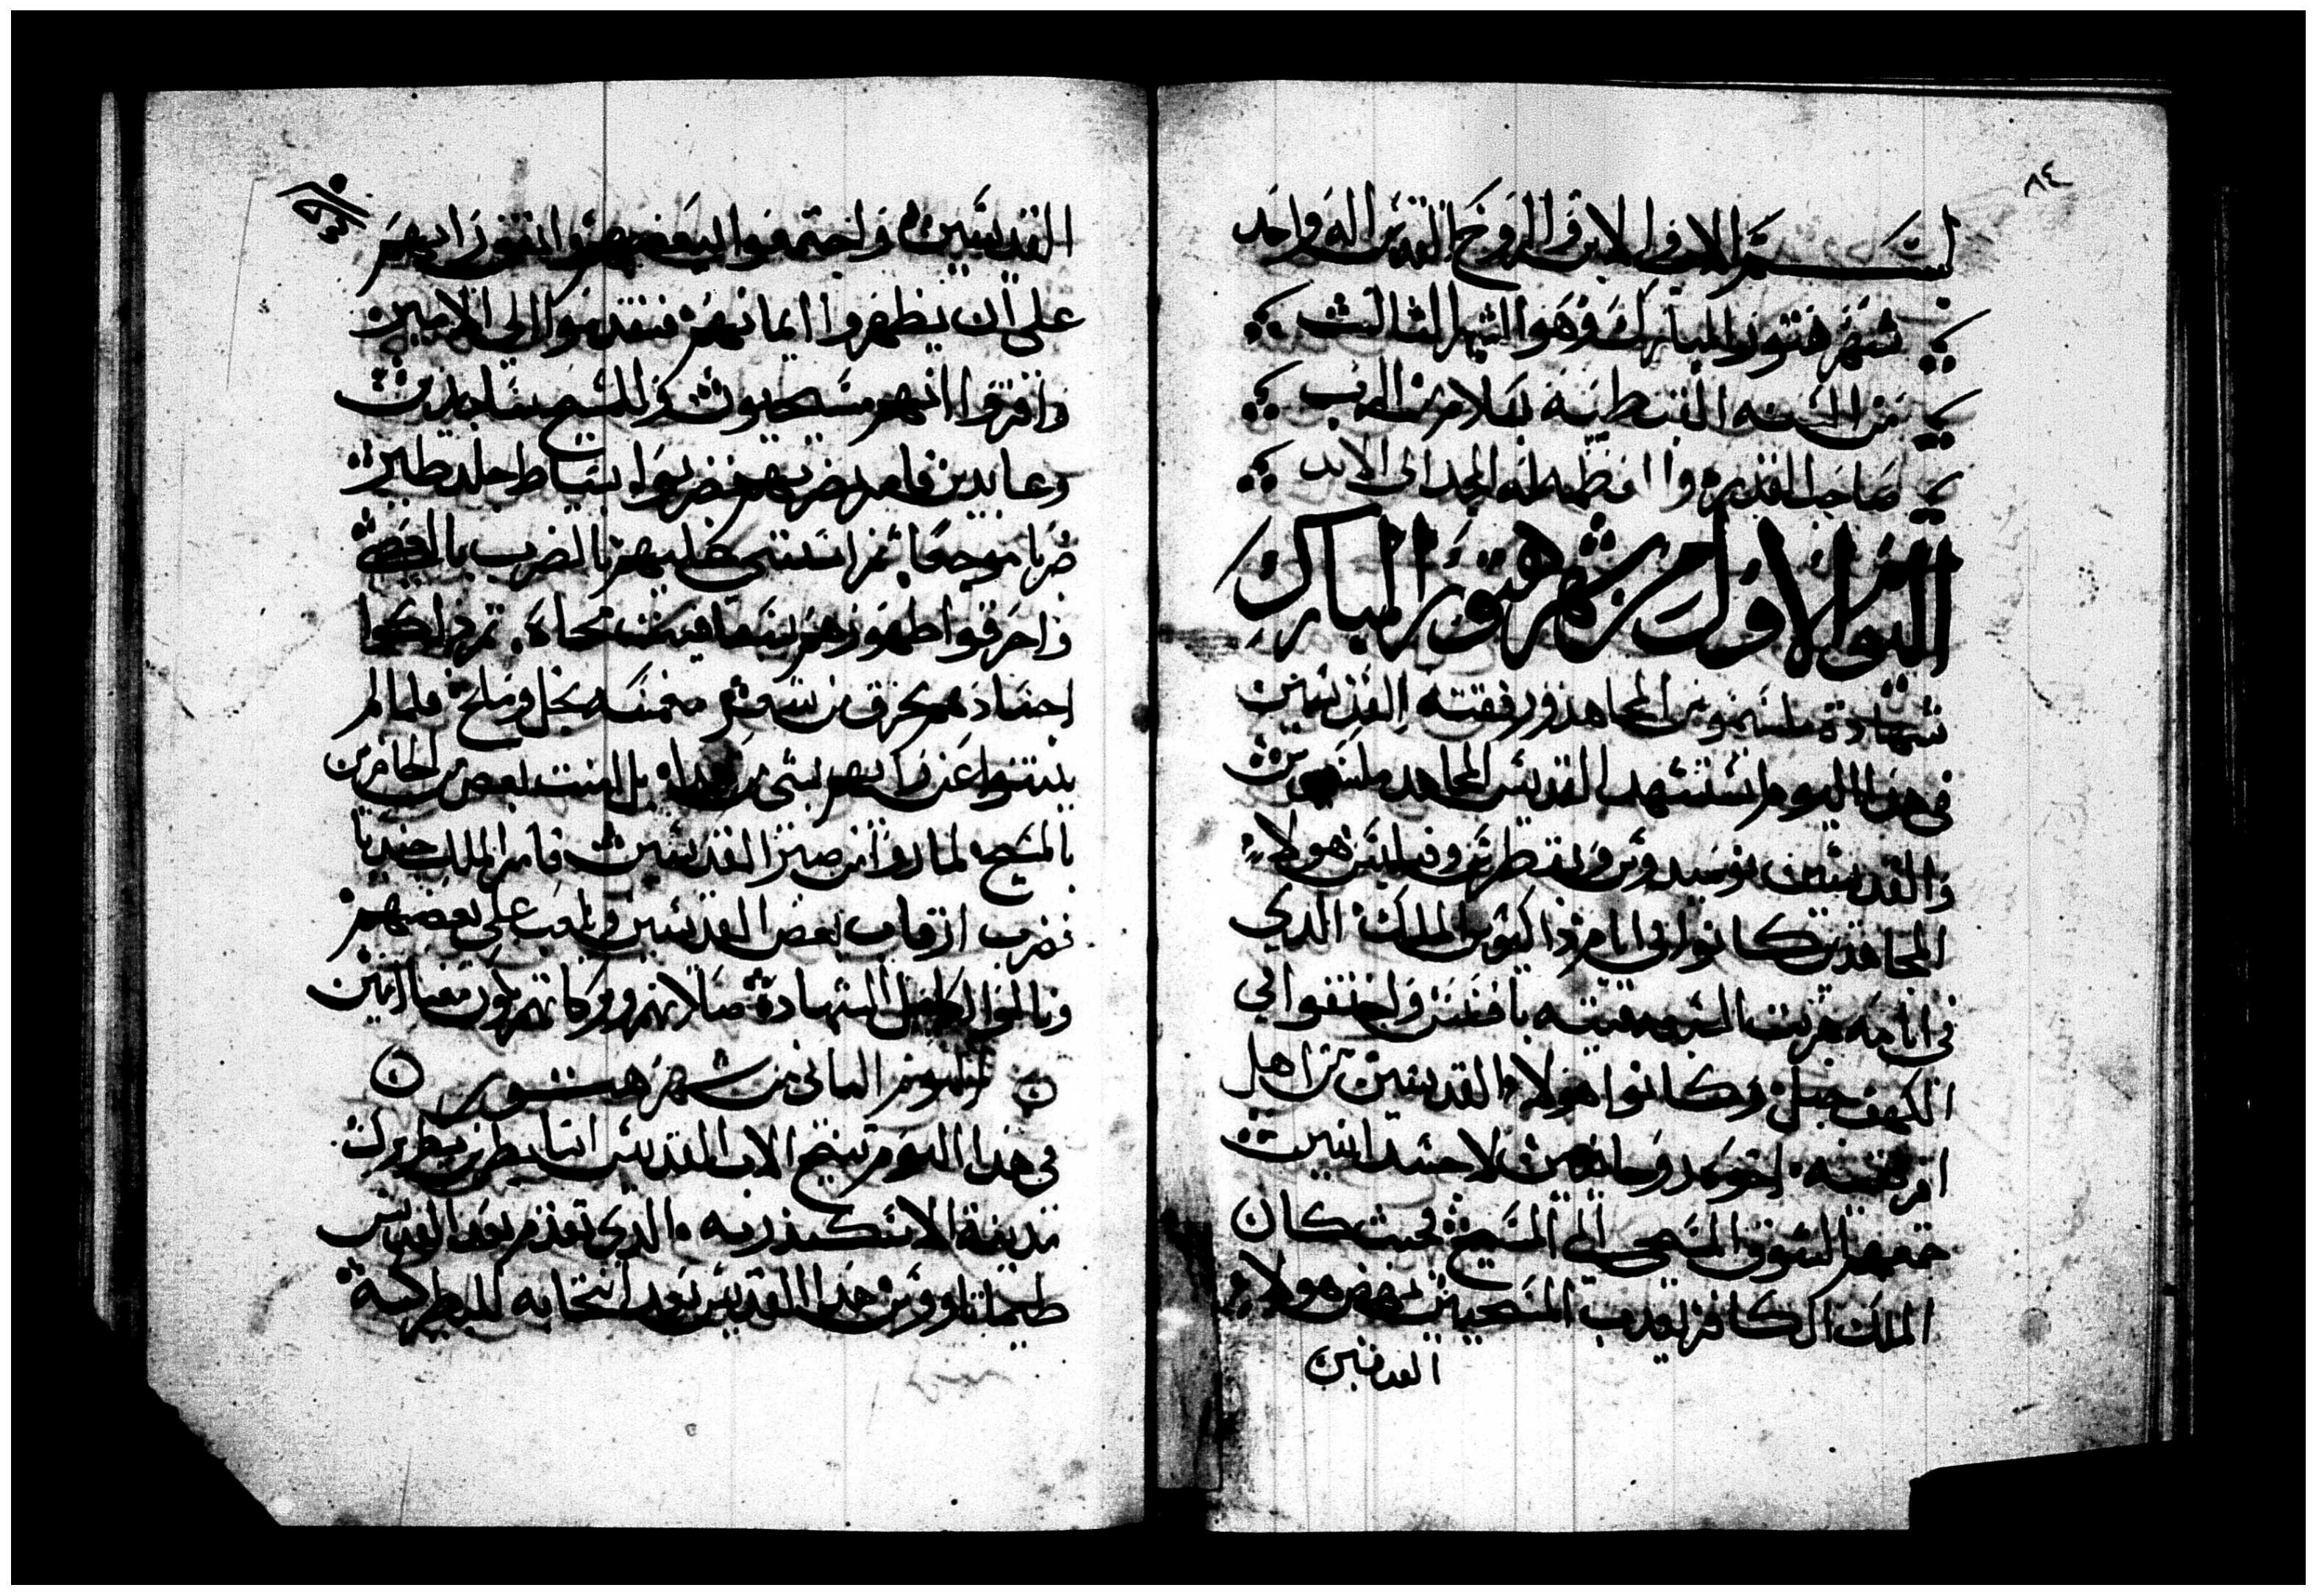 ٨٤
بسم الاب والابن والروح القدس اله واحد
شهر هتور المبارك وهوا الشهر التالت
من السنه القبطيه بسلام من الرب
صاحب القدره والعظمه له المجد الى الابد
اليوم الاول من شهر هتور المبارك
شهادة مكسيموس المجاهد ورفقته القديسين
فى هدا اليوم استشهد القديس المجاهد مكسيموس
والقديسين نوميدوس وبقطر وفيلبس هولاء
المجاهدين كانوا فى ايام داكيوس الملك الدي
فى ايامه هربت الفتيه بافسس واختفوا في
الكهف جبل وكانوا هولاء القديسين من اهل
افريقيه اخوه روحانيين لا جسدانيين
جمعهم الشوق المسيحى الى المسيح فحيث كان
الملك الكافر يعدب المسيحيين نهض هولاء
القديسين
القديسين واجتمعوا لبعضهم واتفق رايهم
على ان يظهروا ايمانهم فتقدموا الى الامير
واقروا انهم مسيحيون وللمسيح ساجدين
وعابدين فامر بضربهم فضربوا بسياط جلد طرى
ضربا موجعا ثم استتنى عليهم بالضرب بالعصى
واحرقوا ظهورهم بسفافيد محماه ثم دلكوا
اجسادهم بخرق من شعر منغمسه بخل وملح فلما لم
ينتنوا عن رايهم بشى من هدا بل امنت بعض من الحاضرين
بالمسيح لما راوا من صبر القديسين فامر الملك جنديا
فضرب ارقاب بعض القديسين وصلب على بعضهم
ونالوا اكليل الشهادة صلاتهم وبركاتهم تكون معنا امين
اليوم التانى من شهر هتور
فى هدا اليوم تنيح الاب القديس انبا بطرس بطريرك
مدينة الاسكندريه والدي تقدم بعد القديس
طيماتاووس هدا القديس بعد انتخابه للبطركيه